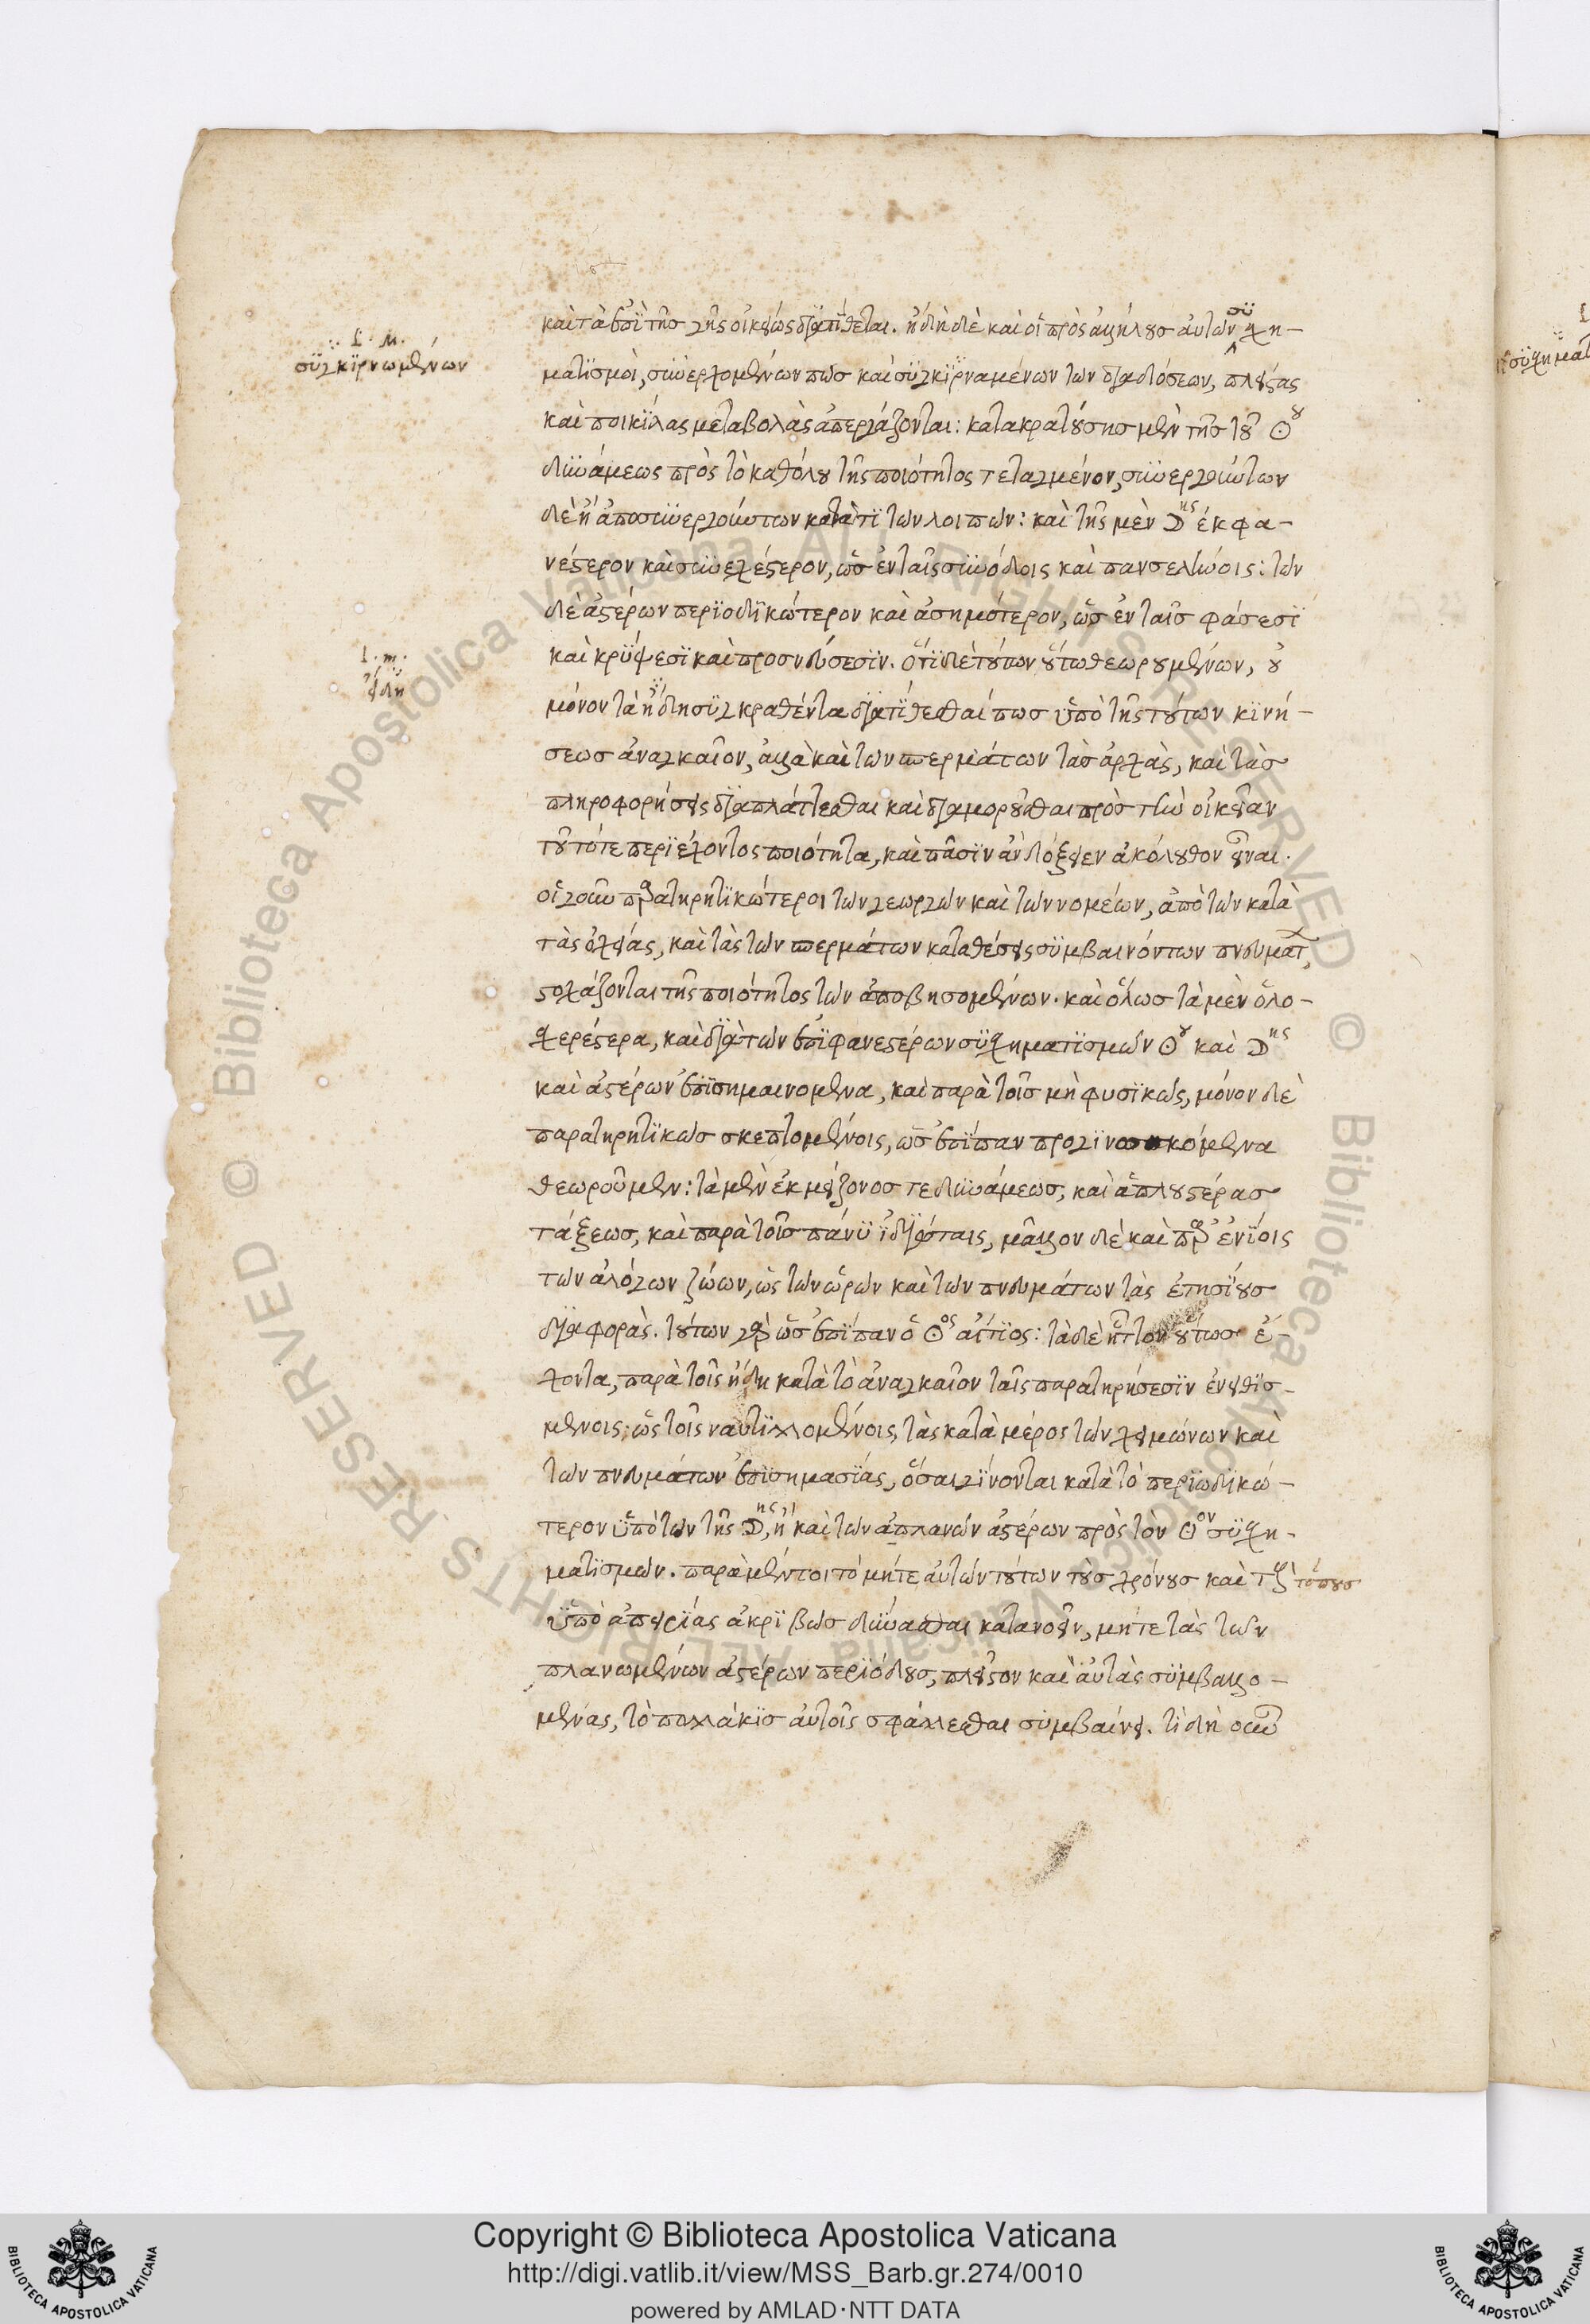 L. M.
σϋγκϊρνωμένων
καὶ τὰ ἐπὶ τῆσ γῆς οἰκείως δϊατϊθεται. ἤδη δὲ καὶ οἱ πρὸς ἀλλήλουσ αὐτῶν συσχη-
ματϊσμοὶ, συνερχομένων πωσ καὶ σϋγκϊρναμένων τῶν δϊαδόσεων, πλείστας
καὶ ποικϊλας μεταβολὰς ἀπεργάζονται: κατακρατούσησ μὲν τῆσ τοῦ ☉ου
δυνάμεως πρὸς τὸ καθόλου τῆς ποιότητος τεταγμένον, συνεργούντων
δὲ ἢ ἀποσυνεργούντων κατὰ τϊ τῶν λοιπῶν: καὶ τῆς μὲν ☽ης ἐκφα-
νέστερον καὶ συνεχέστερον, ὡσ ἐν ταῖς συνόδοις καὶ πανσελήνοις: τῶν
δὲ ἀστέρων περϊοδϊκώτερον καὶ ἀσημότερον, ὡσ ἐν ταῖσ φάσεσϊ
καὶ κρϋψεσϊ καὶ προσνεύσεσϊν. ὅτϊ δὲ τούτων οὕτω θεωρουμένων, οὐ
L. m.
ἤδη
μόνον τὰ ἤδη σϋγκραθέντα δϊατϊθεσθαί πωσ ὑπὸ τῆς τούτων κϊνή-
σεωσ ἀναγκαῖον, ἀλλὰ καὶ τῶν σπερμάτων τὰσ ἀρχὰς, καὶ τὰσ
πληροφορήσεις δϊαπλάττεσθαι καὶ δϊαμορφοῦσθαι πρὸσ τὴν οἰκείαν
τοῦ τότε περϊέχοντος ποιότητα, καὶ πᾶσϊν ἂν δόξειεν ἀκόλουθον εἶναι.
οἱ γοῦν παρατηρητϊκώτεροι τῶν γεωργῶν καὶ τῶν νομέων, ἀπὸ τῶν κατὰ
τὰς ὀχείας, καὶ τὰς τῶν σπερμάτων καταθέσεις σϋμβαινόντων πνευμάτων,
στοχάζονται τῆς ποιότητος τῶν ἀποβησομένων. καὶ ὅλωσ τὰ μὲν ὁλο-
σχερέστερα, καὶ δϊὰ τῶν ἐπϊφανεστέρων σϋσχηματϊσμῶν ☉ου καὶ ☽ης
καὶ ἀστέρων ἐπϊσημαινόμενα, καὶ παρὰ τοῖσ μὴ φυσϊκῶς, μόνον δὲ
παρατηρητϊκῶσ σκεπτομένοις, ὡσ ἐπϊπαν προγϊνωσκόμενα
θεωροῦμεν: τὰ μὲν ἐκ μείζονοσ τε δυνάμεωσ, καὶ ἁπλουστέρασ
τάξεωσ, καὶ παρὰ τοῖσ πάνυ ἰδϊώταις, μᾶλλον δὲ καὶ παρ' ἐνϊοις
τῶν ἀλόγων ζώων, ὡς τῶν ὡρῶν καὶ τῶν πνευμάτων τὰς ἐτησϊουσ
δϊαφορὰς. τούτων γὰρ ὡσ ἐπϊπαν ὁ ☉ος αἴτϊος: τὰ δὲ ἧττον οὕτωσ ἔ-
χοντα, παρὰ τοῖς ἤδη κατὰ τὸ ἀναγκαῖον ταῖς παρατηρήσεσϊν ἐνειθϊσ-
μένοις: ὡς τοῖς ναυτϊλλομένοις, τὰς κατὰ μέρος τῶν χειμώνων καὶ
τῶν πνευμάτων ἐπϊσημασϊας, ὅσαι γϊνονται κατὰ τὸ περϊωδϊκώ-
τερον ὑπὸ τῶν τῆς ☽ης, ἢ καὶ τῶν ἀπλανῶν ἀστέρων πρὸς τὸν ☉ον σϋσχη-
ματϊσμῶν. παρὰ μέντοι τὸ μήτε αὐτῶν τούτων τοὺσ χρόνουσ καὶ τοὺς τόπουσ
ὑπὸ ἀπειρϊας ἀκρϊβῶσ δύνασθαι κατανοεῖν, μήτε τὰς τῶν
πλανωμένων ἀστέρων περϊόδουσ, πλεῖστον καὶ αὐτὰς σϋμβαλλο-
μένας, τὸ πολλάκϊσ αὐτοῖς σφάλλεσθαι συμβαίνει. τί δὴ οὖν